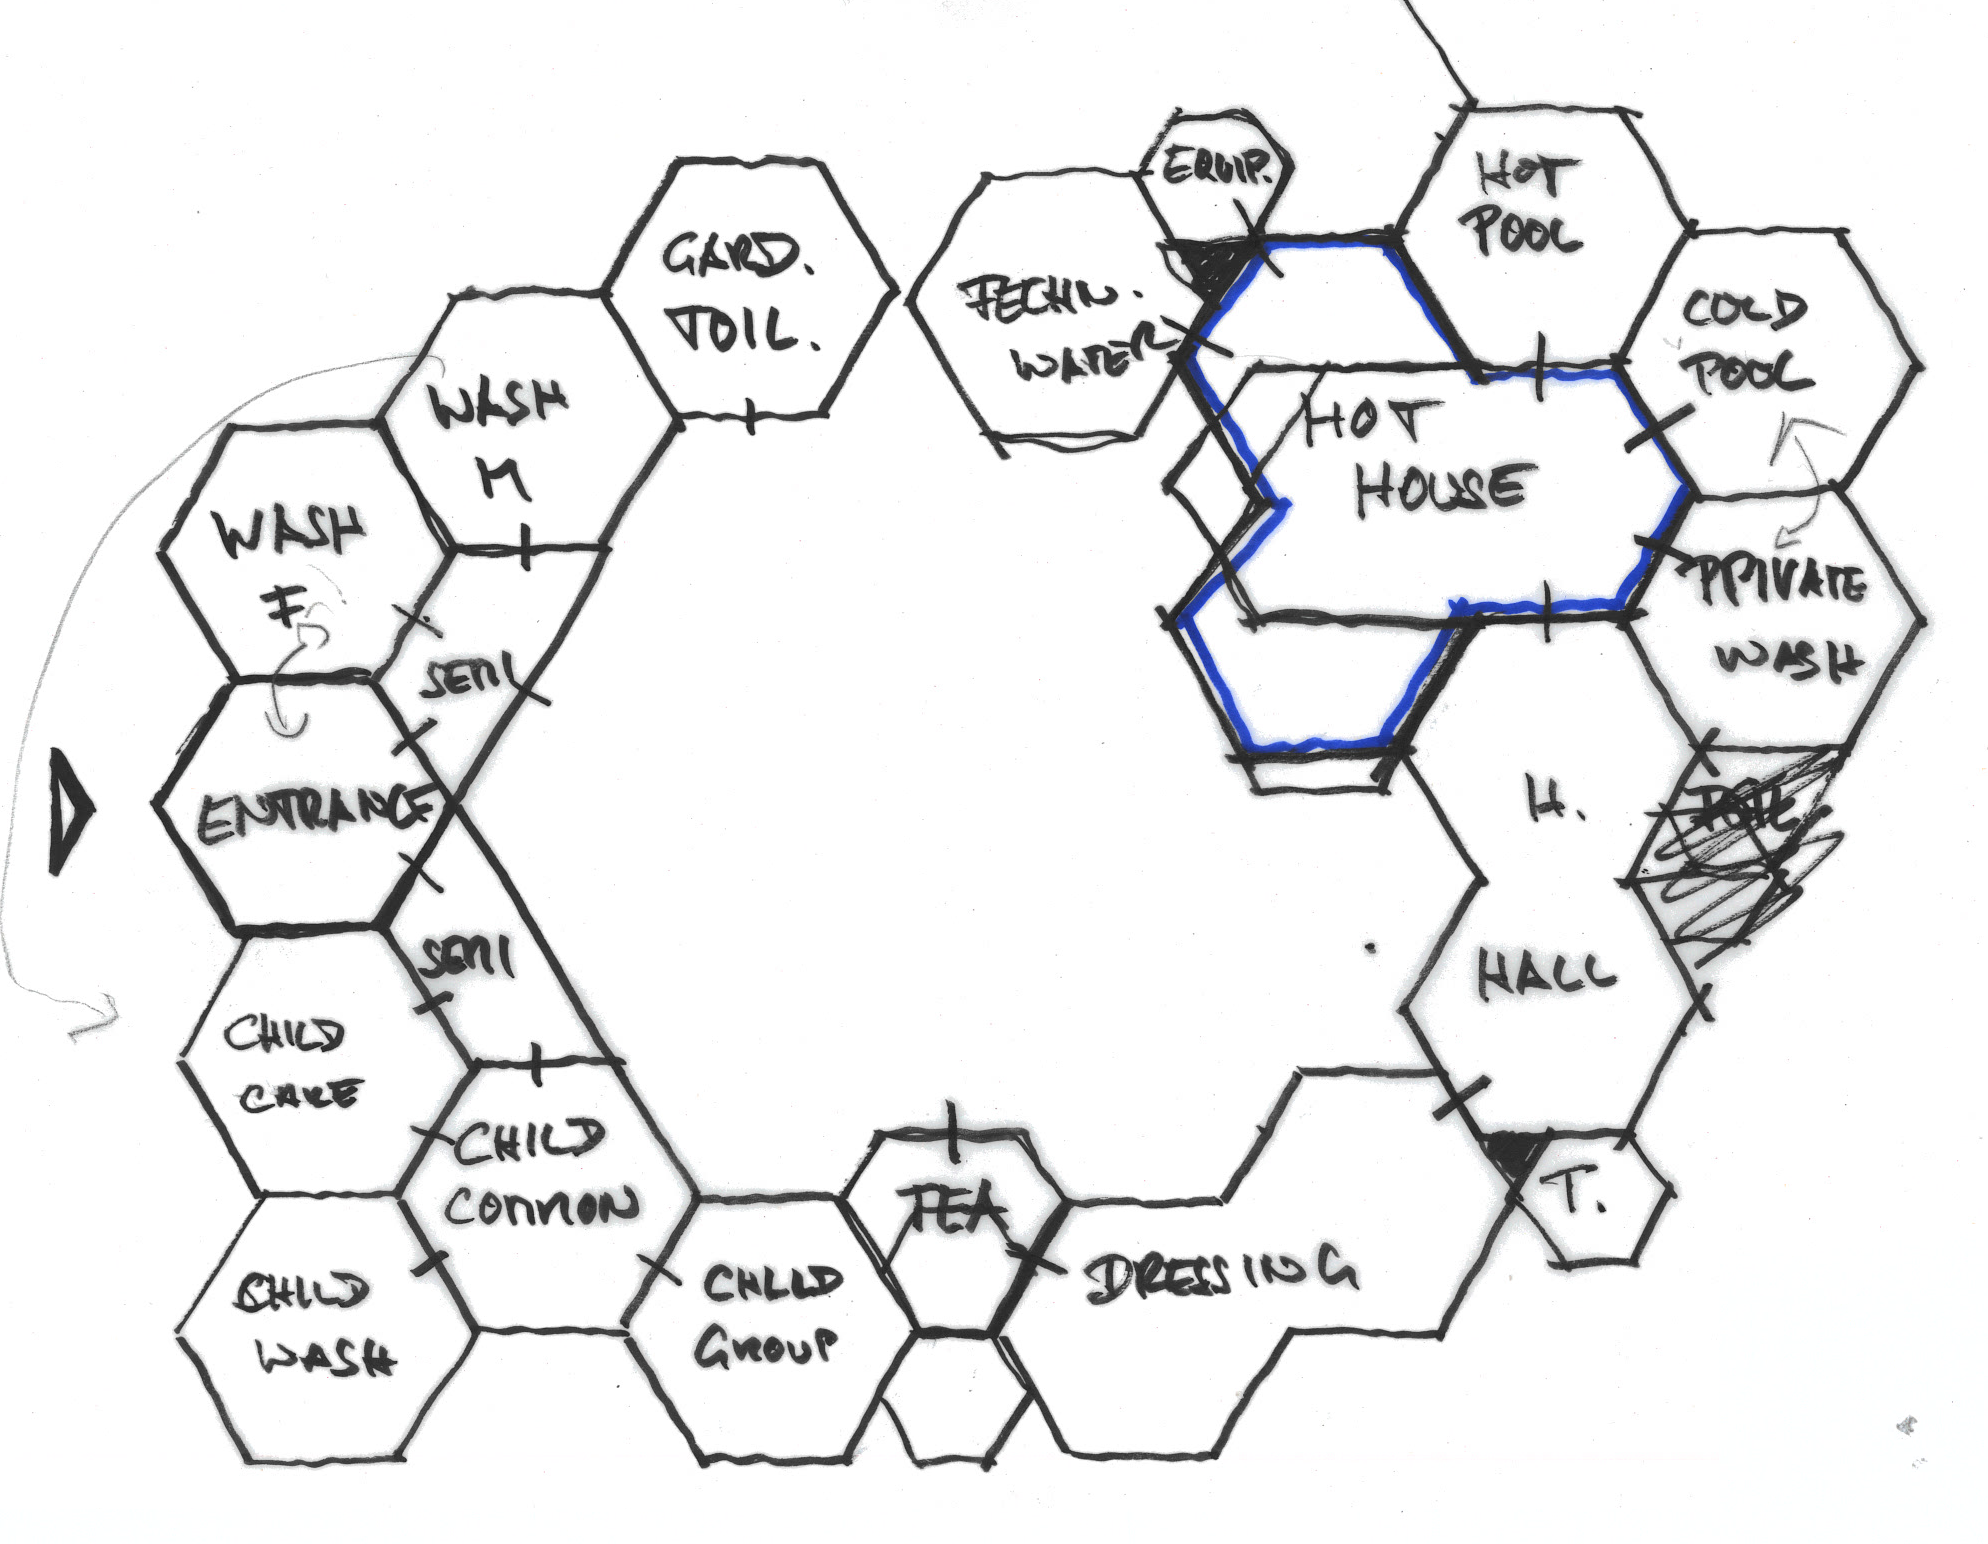 EQUIP.
HOT
POOL
GARD.
TOIL.
TECHN.
WATER
COLD
POOL
WASH
M
HOT
HOUSE
WASH
F
PRIVATE
WASH
SEMI
ENTRANCE
H.
SEMI
HALL
CHILD
CARE
CHILD
COMMON
TEA
T.
CHILD
WASH
CHILD
GROUP
DRESSING